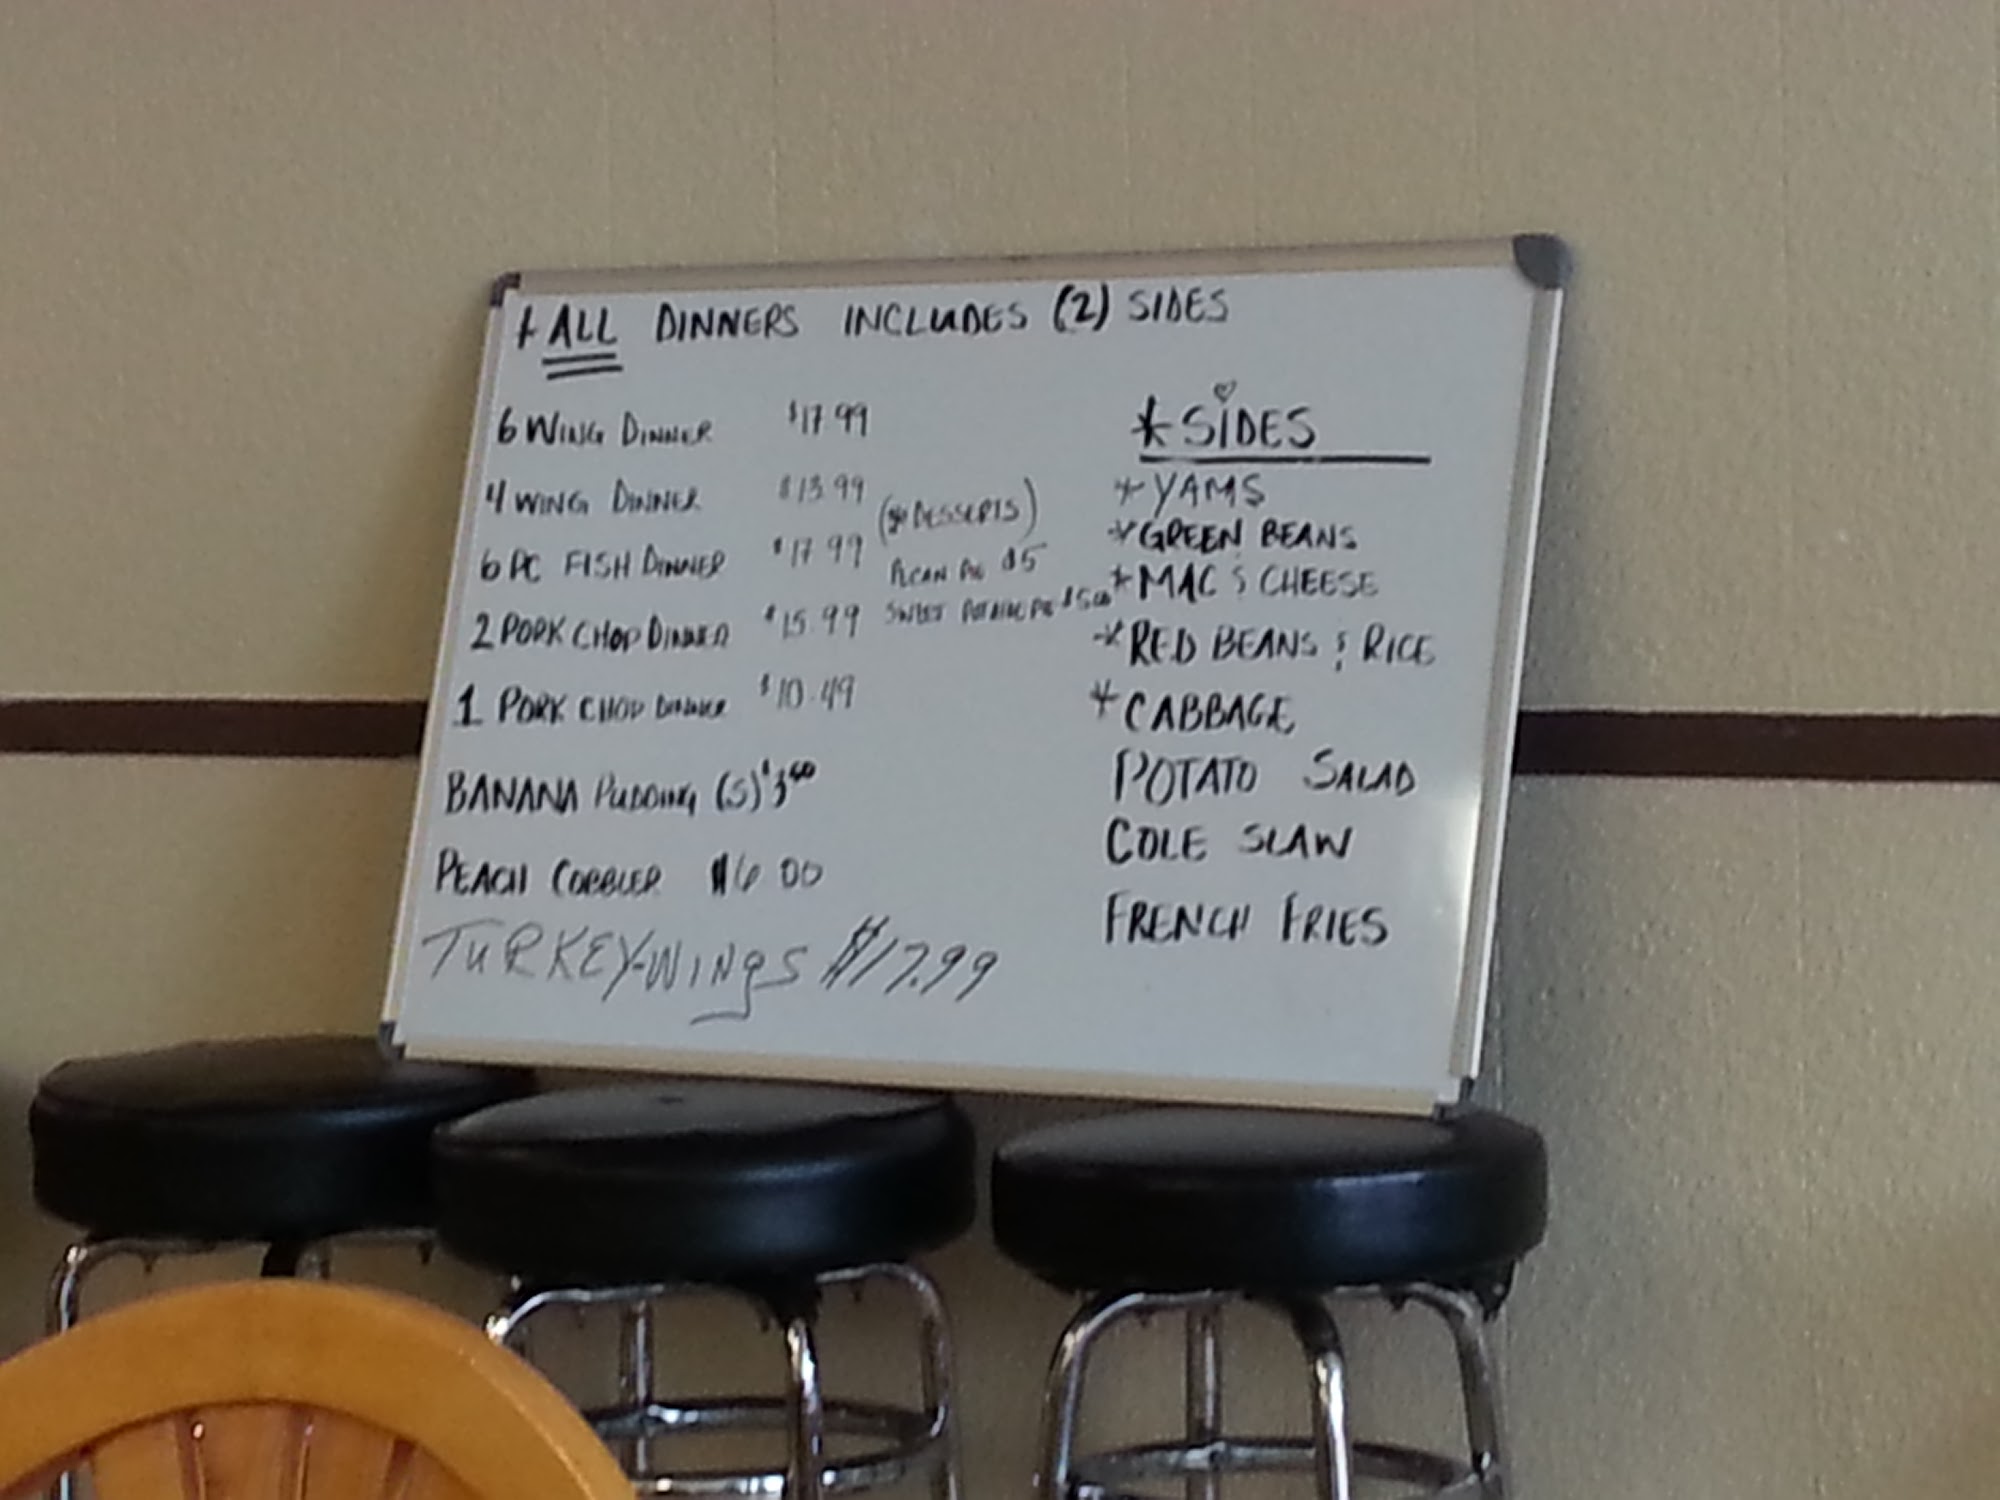 * ALL DINNERS INCLUDES (2) SIDES
6 WING DINNER $17.99
4 WING DINNER $13.99
6 PC FISH DINNER $17.99
2 PORK CHOP DINNER $15.99
1 PORK CHOP DINNER $10.49
BANANA PUDDING (S) $3
PEACH COBBLER $6.00
TURKEY-WINGS $17.99
(* DESSERTS)
PECAN PIE $5
SWEET POTATOE PIE $5.00
* SIDES
* YAMS
* GREEN BEANS
* MAC & CHEESE
* RED BEANS & RICE
* CABBAGE
POTATO SALAD
COLE SLAW
FRENCH FRIES